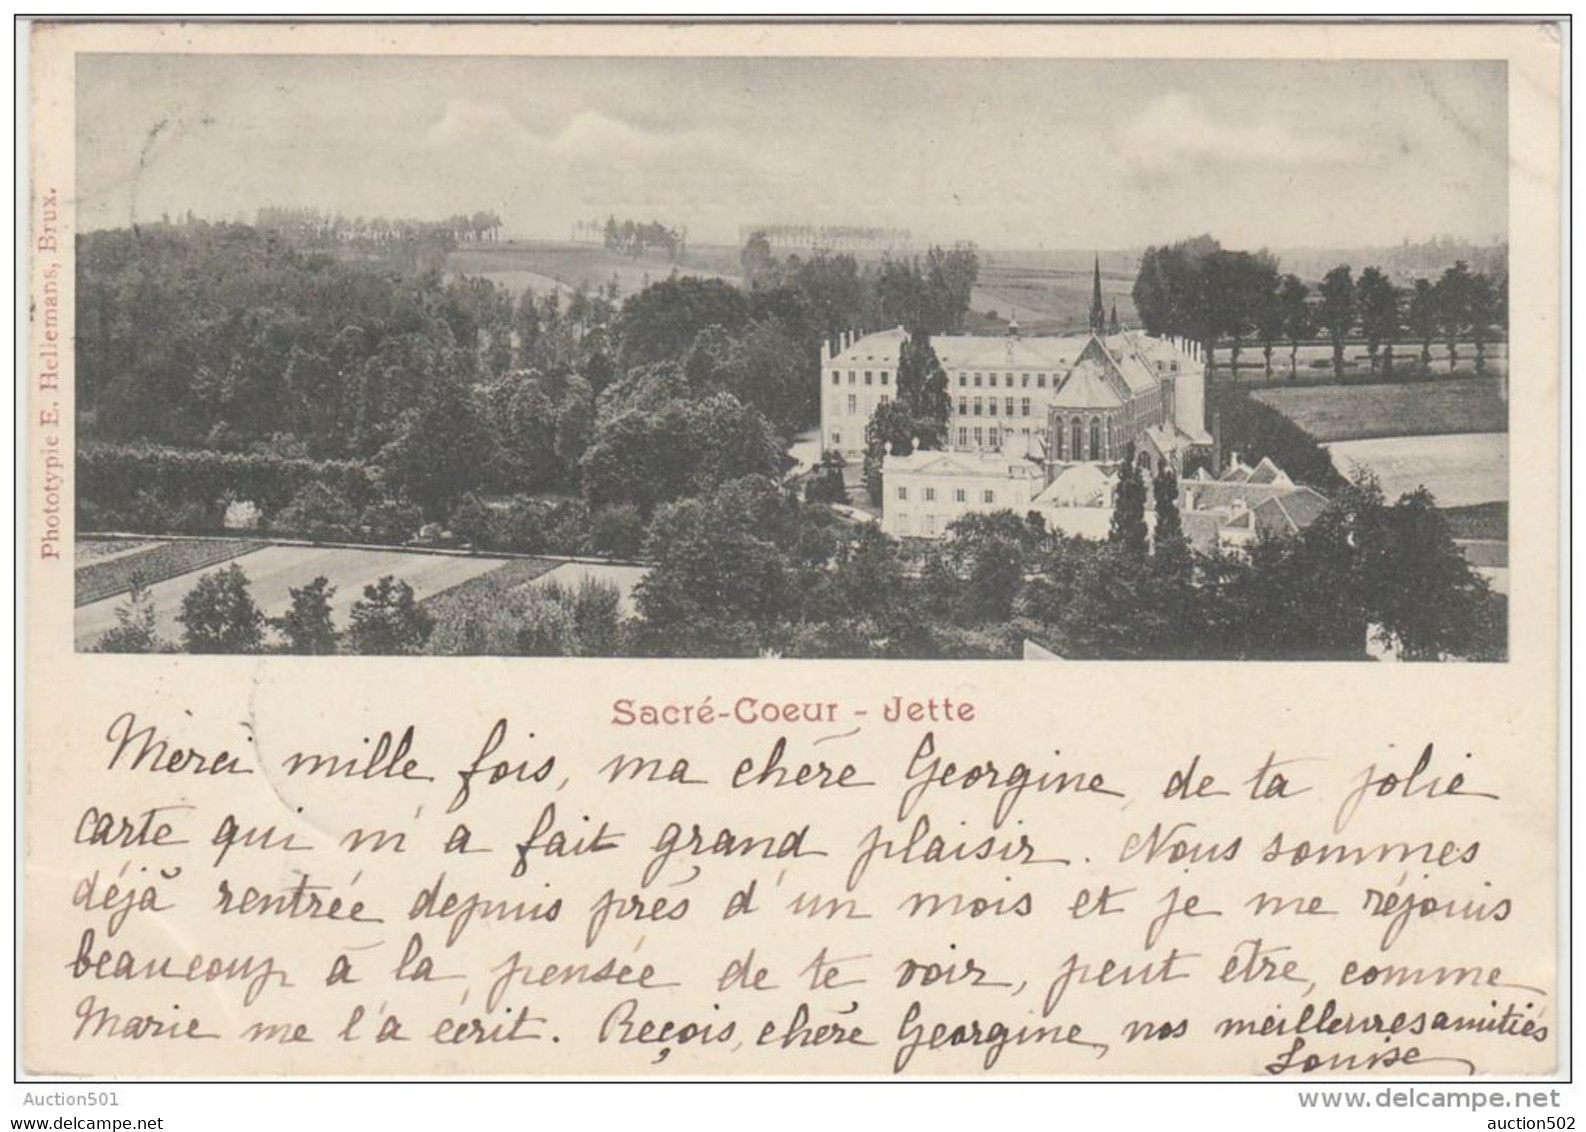 Phototypie E. Hellemans, Brux.
Sacré-Coeur - Jette
Merci mille fois, ma chère Georgine, de ta jolie
carte qui m'a fait grand plaisir. Nous sommes
déjà rentrée depuis près d'un mois et je me réjouis
beaucoup à la pensée de te voir, peut être, comme
Marie me l'a écrit. Reçois, chère Georgine, nos meilleures amitiés
Louise
Auction501
www.delcampe.net
auction502
auction502